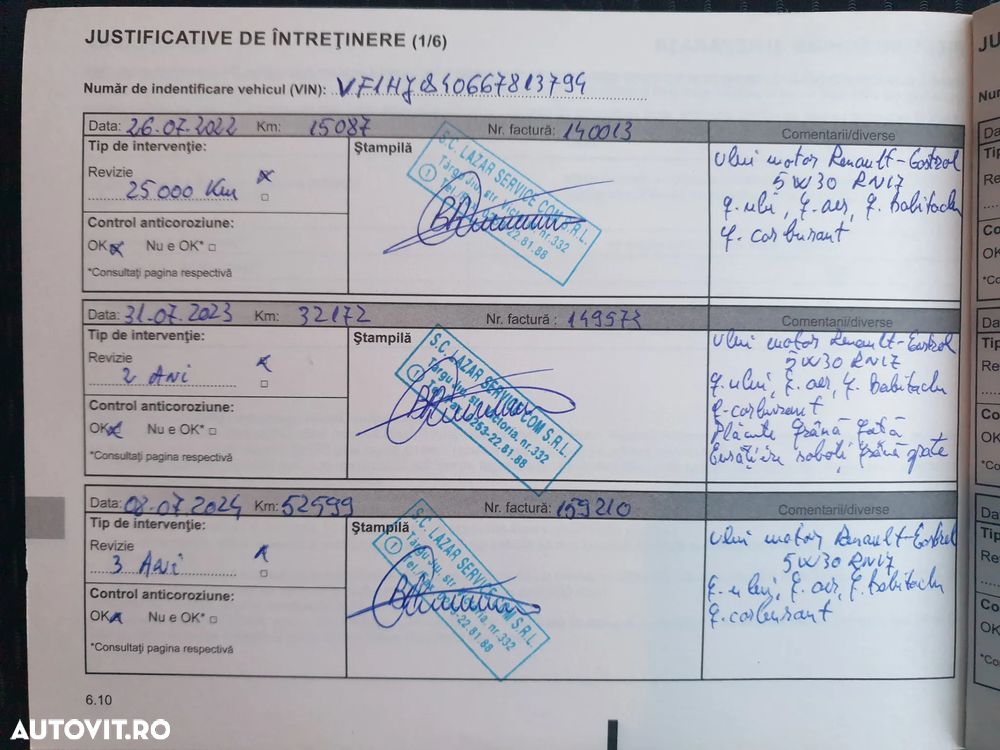 JUSTIFICATIVE DE ÎNTREŢINERE (1/6)
Număr de indentificare vehicul (VIN): VF1HJ840667813794
Data: 26.07.2022 Km: 15087 Nr. factură: 140013 Comentarii/diverse
Tip de intervenţie:
Revizie
25000 Km
Control anticoroziune:
OK Nu e OK*
*Consultaţi pagina respectivă
Ştampilă
S.C. LAZAR SERVICE COM S.R.L.
Târgu Jiu, str. Victoria, nr.332
1
Ulei motor Renault-Castrol
5W30 RN17
f. ulei, f. aer, f. habitaclu
f. carburant
Data: 31.07.2023 Km: 32172 Nr. factură : 149577 Comentarii/diverse
Tip de intervenţie:
Revizie
2 Ani
Control anticoroziune:
OK Nu e OK*
*Consultaţi pagina respectivă
Ştampilă
S.C. LAZAR SERVICE COM S.R.L.
Târgu Jiu, str. Victoria, nr.332
1 Tel. 0253-22.81.88
Ulei motor Renault-Castrol
5W30 RN17
f. ulei, f. aer, f. habitaclu
f. carburant
Plăcuțe frână față
saboți frână spate
Data: 08.07.2024 Km: 52599 Nr. factură: 159210 Comentarii/diverse
Tip de intervenţie:
Revizie
3 Ani
Control anticoroziune:
OK Nu e OK*
*Consultaţi pagina respectivă
Ştampilă
S.C. LAZAR SERVICE COM S.R.L.
Târgu Jiu, str. Victoria, nr.332
1
Ulei motor Renault-Castrol
5W30 RN17
f. ulei, f. aer, f. habitaclu
f. carburant
6.10
AUTOVIT.RO
JU
Nu
Da
Tip
Re
Co
OK
*Co
Da
Tip
Re
Co
OK
*Co
Da
Tip
Re
Co
OK
*Co